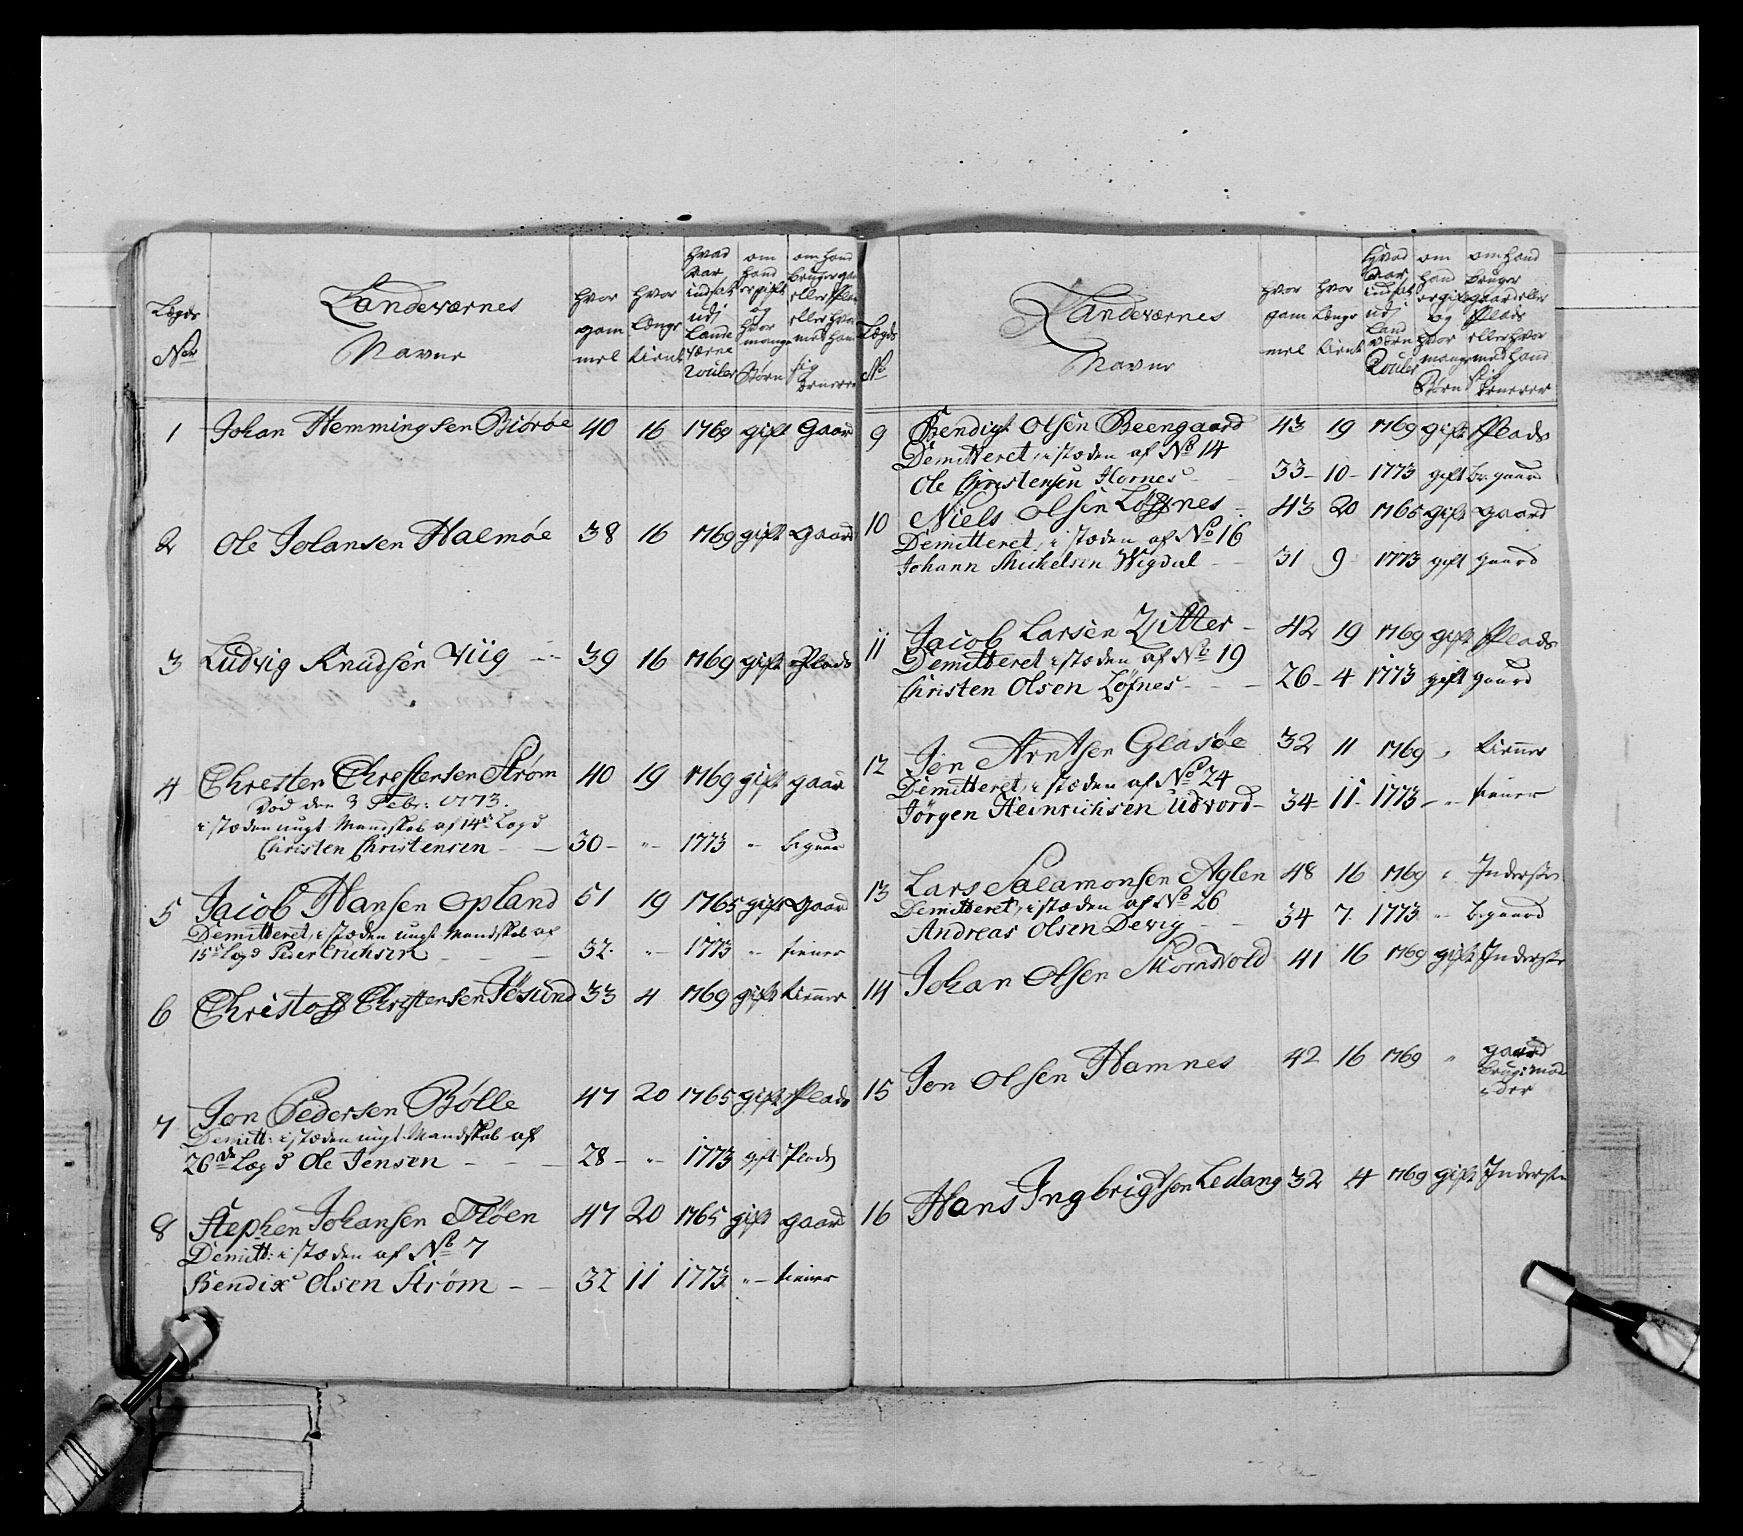 Lægds No
Landeværnes Navne
hvor gammel
hvor længe tient
hvad aar indsat udj Lande værne Rouler
om hand er gift og hvor mange Børn
om hand bruger gaard eller Plads eller hvormed hand sig ernerer
1 Johan Hemmingsen Biørøe 40 16 1769 gift Gaard
2 Ole Johansen Halmøe 38 16 1769 gift gaard
3 Ludvig Knudsen Viig 39 16 1769 gift Plads
4 Christen Christensen Strøm 40 19 1769 gift gaard
Død den 3 Febr: 1773.
i stæden ungt Mandskab af 14de Lægd
Christen Christensen 30 - " - 1773 "
5 Jacob Hansen Opland 51 19 1765 gift gaard
Demitteret, i stæden ungt Mandskab af
15de Lægd Peder Erichsen 32 - " - 1773 " tiener
6 Christoff Christensen Søsund 33 4 1769 gift tiener
7 Jon Pedersen Bølle 47 20 1765 gift Plads
Demitt: i stæden ungt Mandskab af
26de Lægd Ole Jensen 28 - " - 1773 gift Plads
8 Stephen Johansen Fløen 47 20 1765 gift gaard
Demitt: i stæden af No 7
Bendix Olsen Strøm 32 11 1773 " - tiener
Lægds No
Landeværnes Navne
hvor gammel
hvor længe tient
hvad aar indsat udj Land værn Rouler
om hand er gift og hvor mange Børn
om hand bruger gaard eller Plads eller hvor med hand sig ernerer
9 Bendigt Olsen Beengaard 43 19 1769 gift Plads
Demitteret, i stæden af No 14
Ole Christensen Hornes 33 - 10 - 1773 gift br: gaard
10 Niels Olsen Løffnes 43 20 1765 gift gaard
Demitteret, i stæden af No 16
Johann Michelsen Wigdal 31 9 1773 gift gaard
11 Jacob Larsen Zitter 42 19 1769 gift Plads
Demitteret i stæden af No 19
Christen Olsen Løfnes 26 - 4 1773 gift gaard
12 Jon Arntsen Glasøe 32 11 1769 " tiener
Demitteret, i stæden af No 24
Jørgen Heinrichsen Udvord 34 - 11 - 1773 - " tiener
13 Lars Salamonsen Aglen 48 16 1769 " Inderste
Demitteret, i stæden af No 26
Andreas Olsen Devig 34 7 1773 " br: gaard
14 Johan Olsen Skomsvold 41 16 1769 gift Inderste
15 Jon Olsen Hamnes 42 16 1769 " gaard
16 Hans Ingbrigtsen Ledang 32 4 1769 gift Inderste